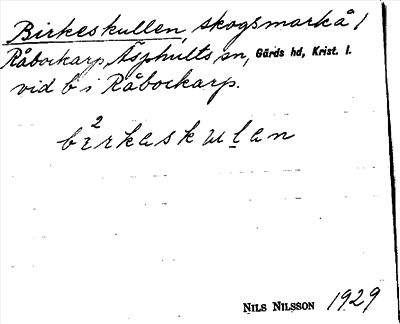 Birkeskullen, skogsmark å /
Råbockarp, Äsphults sn, Gärds hd, Krist. l.
vid b. i Råbockarp.
bi²rkaskulan
NILS NILSSON 1929